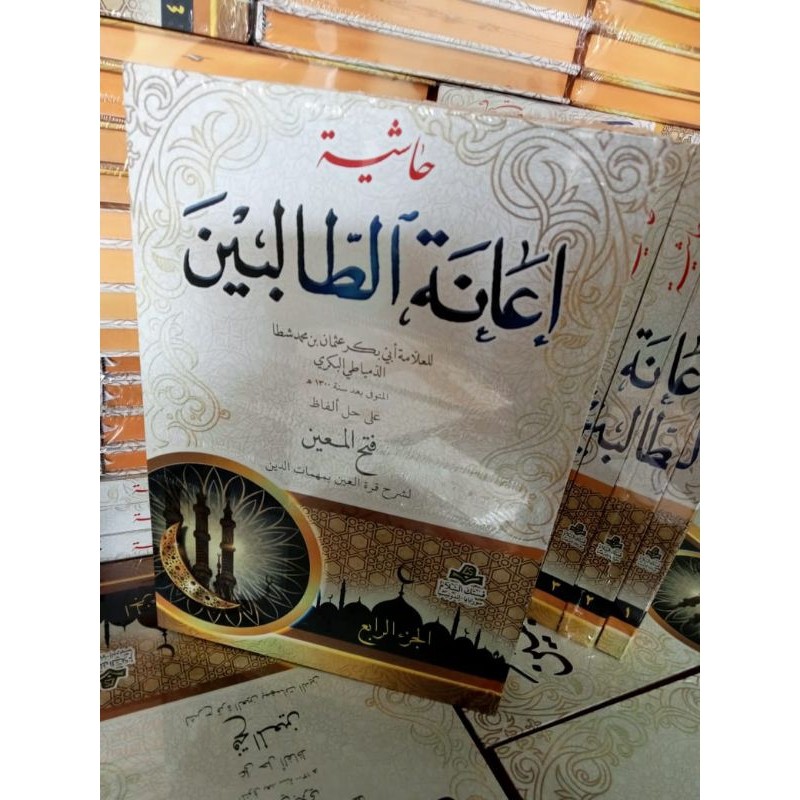 حاشية
إعَانَة الطَّالبِيْنَ
للعلامة أبي بكر عثمان بن محمد شطا
الدمياطي البكري
المتوفى بعد سنة ١٣٠٠ هـ
على حل ألفاظ
فتح المعين
لشرح قرة العين بمهمات الدين
الجزء الرابع
٣
٢
١